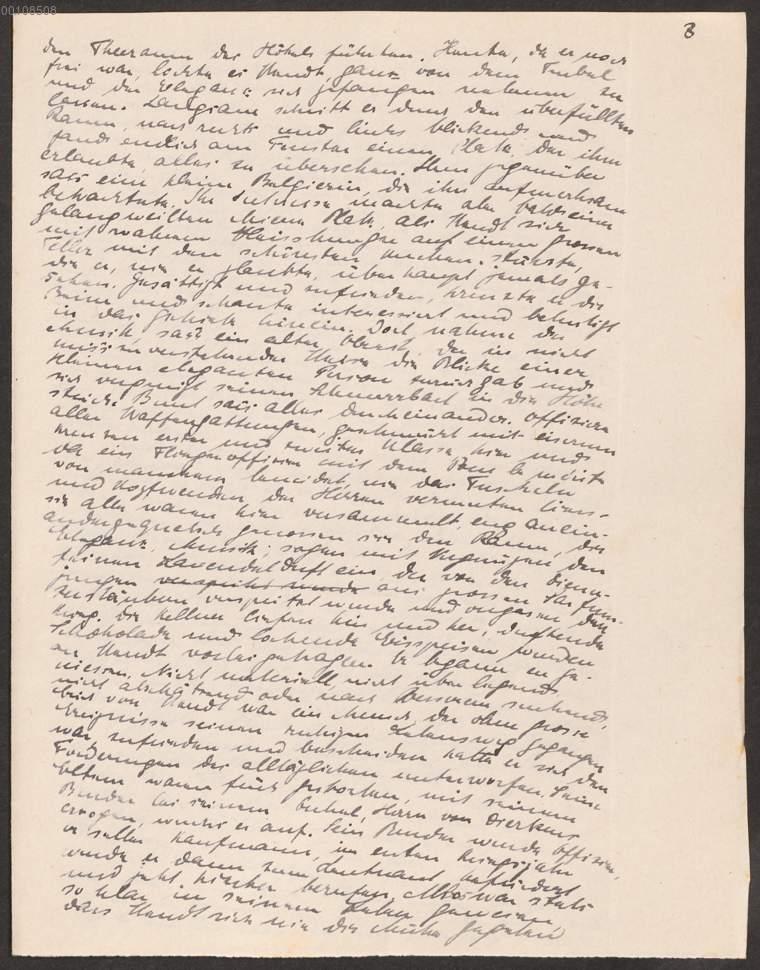 00108508
8
den Theeraum des Hôtels führten. Heute, da er noch
frei war, lockte es Handt, ganz von dem Trubel
und der Eleganz sich gefangen nehmen zu
lassen. Langsam schritt er durch den überfüllten
Raum, nach rechts und links blickend und
fand endlich am Fenster einen Platz, der ihm
erlaubte, alles zu übersehen. Ihm gegenüber
sass eine kleine Belgierin, die ihn aufmerksam
betrachtete. Ihr Interesse machte aber bald einer
gelangweilten Miene Platz, als Handt sich
mit wahrem Heisshunger auf einen grossen
Teller mit den schönsten Kuchen stürzte,
die er, wie er glaubte, überhaupt jemals ge-
sehen. Gesättigt und zufrieden, kreuzte er die
Beine und schaute interessiert und belustigt
in das Gewirr hinein. Dort nahe der
Musik, sass ein alter Oberst, der die nicht
misszuverstehenden Blicke einer
kleinen eleganten Person zurückgab und
sich vergnügt seinen Schnurrbart in die Höhe
strich. Bunt sass alles durcheinander. Offiziere
aller Waffengattungen, geschmückt mit eisernen
Kreuzen erster und zweiter Klasse, hier und
da ein Fliegeroffizier mit dem Pour le mérite
von manchem beneidet, wie das Tuscheln
und Kopfwenden der Herren vermuten liess.
sie alle waren hier versammelt, eng anein-
andergequetscht genossen sie den Raum, die
Eleganz, Musik, sogen mit Vergnügen den
feinen Lavendelduft ein, der von den Diener-
jungen aus grossen Parfum-
zerstäubern verspritzt wurde und vergassen den
Krieg. Die Kellner liefen hin und her, duftende
Schokolade und lockende Eisspeisen wurden
an Handt vorbeigetragen. Er begann zu ge-
niessen. Nicht materiell nicht überlegend,
nicht abschätzend oder nach Besserem suchend,
denn von Handt war ein Mensch, der ohne grosse
Ereignisse seinen ruhigen Lebensweg gegangen
war, zufrieden und bescheiden hatte er sich den
Forderungen des alltäglichen unterworfen. Seine
Eltern waren früh gestorben, mit seinem
Bruder bei seinem Onkel, Herrn von Dierkens
erzogen, wuchs er auf. Sein Bruder wurde Offizier,
er selber Kaufmann, im ersten Kriegsjahr
wurde er dann zum Leutnant befördert
und jetzt hierher berufen. Alles war stets
so klar in seinem Leben gewesen
dass Handt sich nie die Mühe gegeben